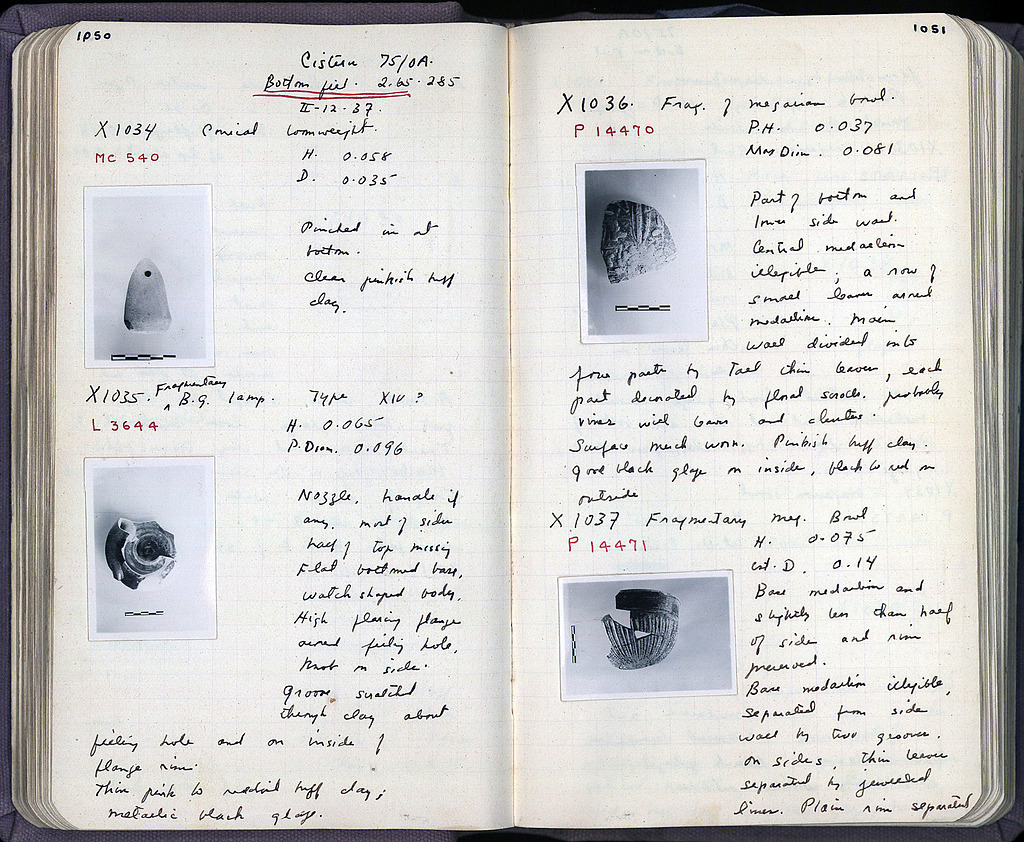 1050
Cistern 75/OA.
Bottom fill. 2.65-285
II-12-37.
X1034 Conical loomweight.
MC 540
H. 0.058
D. 0.035
Pinched in at
bottom.
Clean pinkish buff
clay.
X1035. Fragmentary B.G. lamp. Type XIV ?
L 3644
H. 0.065
P. Diam. 0.096
Nozzle, handle if
any, most of side
half of top missing
Flat bottomed base,
watch shaped body.
High flaring flange
around filling hole,
knob on side.
Groove scratched
through clay about
filling hole and on inside of
flange rim.
Thin pink to reddish buff clay;
metallic black glaze.
1051
X1036. Frag. of megarian bowl.
P 14470
P.H. 0.037
Max Dim. 0.081
Part of bottom and
lower side wall.
Central medallion
illegible; a row of
small leaves around
medallion. Main
wall divided into
four parts by tall thin leaves, each
part decorated by floral scrolls, probably
vines with leaves and clusters.
Surface much worn. Pinkish buff clay.
Good black glaze on inside, black to red on
outside
X1037 Fragmentary Meg. Bowl
P 14471
H. 0.075
est. D. 0.14
Base medallion and
slightly less than half
of side and rim
preserved.
Base medallion illegible,
separated from side
wall by two grooves.
On sides, thin leaves
separated by jewelled
lines. Plain rim separated